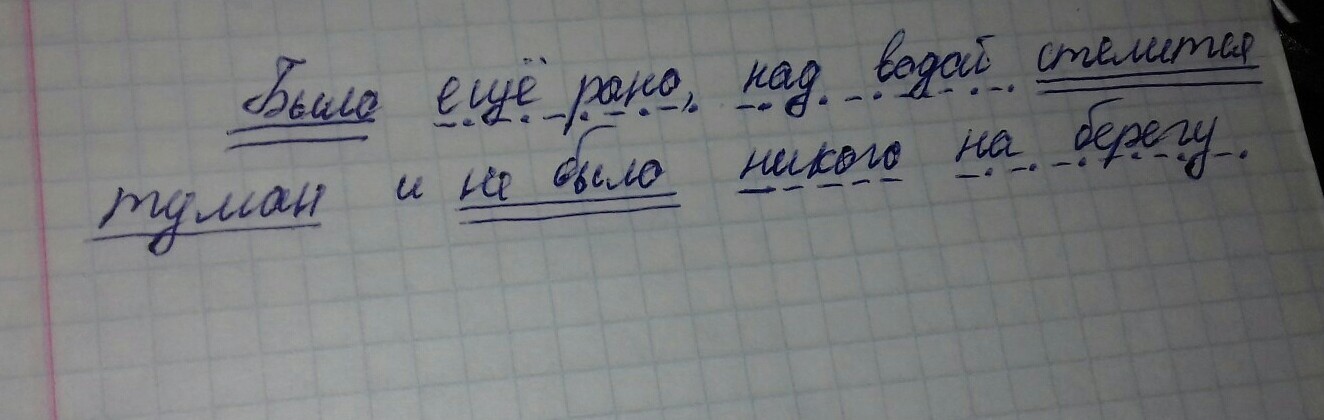 Было ещё рано, над водой стелится
туман и не было никого на берегу